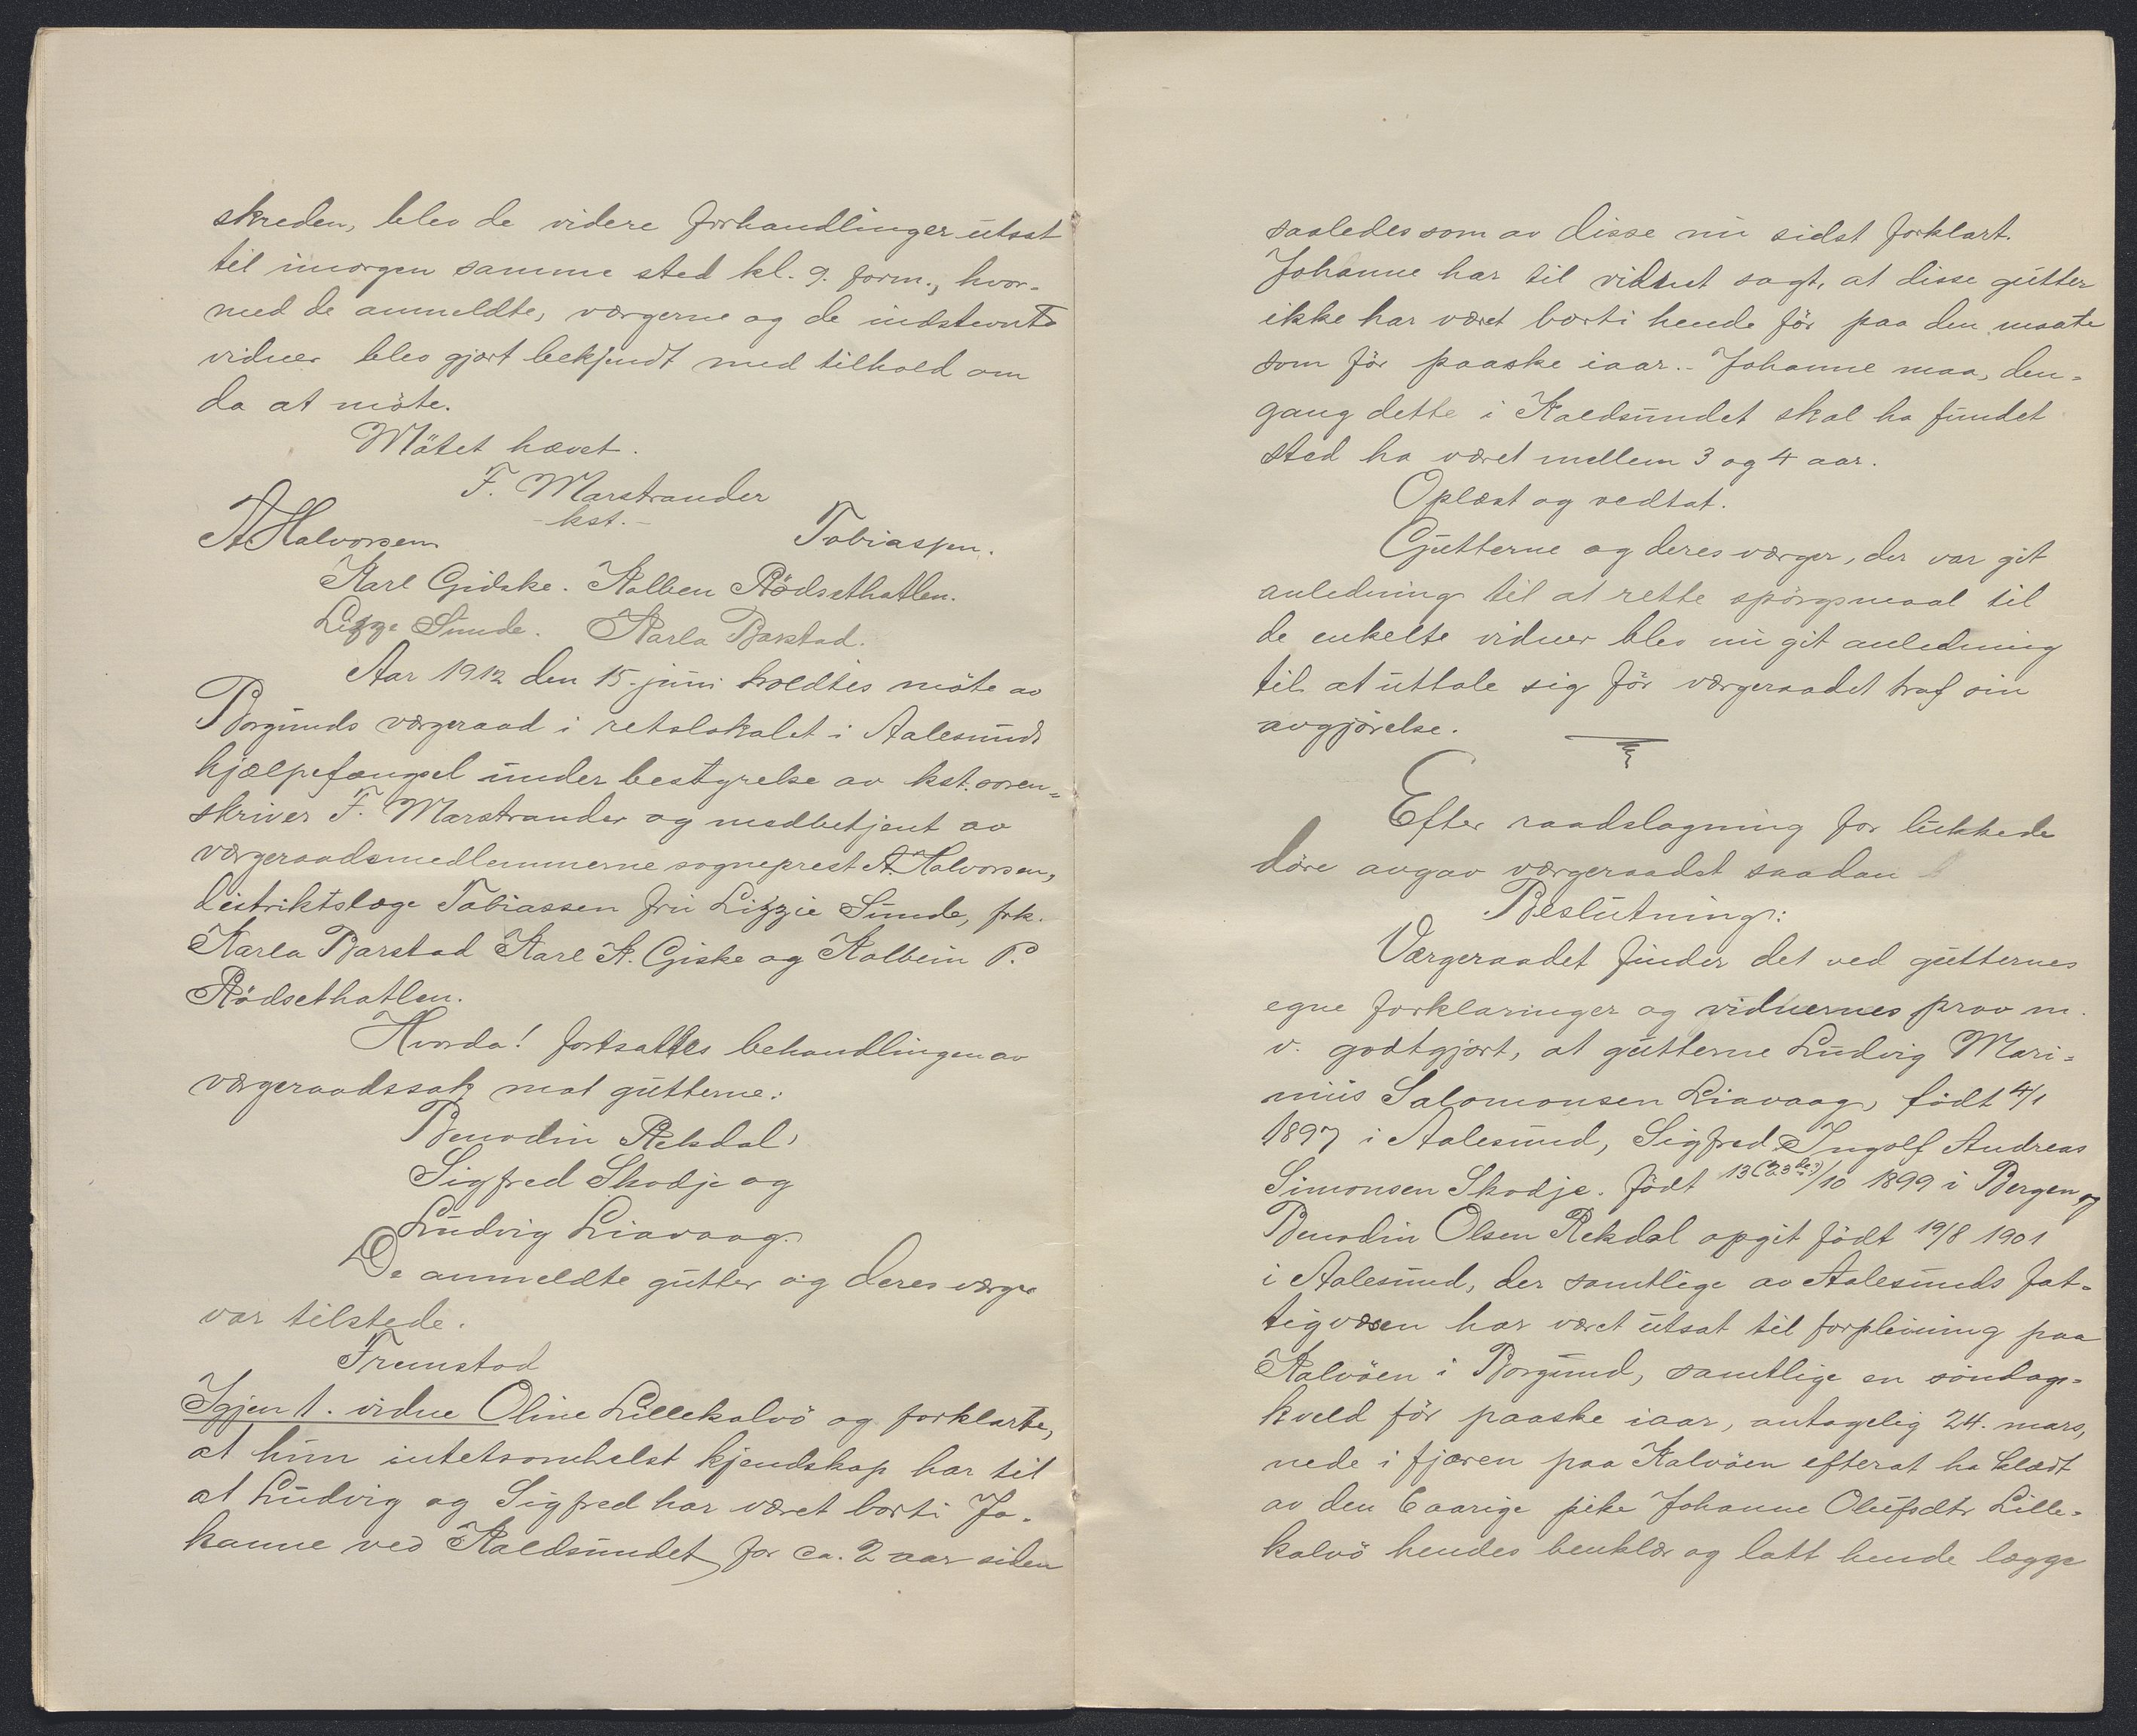 skreden, blev de videre forhandlinger utsat
til imorgen samme sted kl. 9. form., hvor-
med de anmeldte, værgerne og de indstevnte
vidner blev gjort bekjendt med tilhold om
da at möte.
Mötet hævet.
F. Marstrander
-kst.-
A Halvorsen. Tobiassen.
Karl Gidske. Kolben Rödsethatlen.
Lizzie Sunde. Karla Barstad.
Aar 1912 den 15. juni holdtes möte av
Borgunds værgeraad i retslokalet i Aalesunds
hjælpefængsel under bestyrelse av kst. soren-
skriver F. Marstrander og medbetjent av
værgeraadsmedlemmerne sogneprest A. Halvorsen,
distriktslæge Tobiassen fru Lizzie Sunde, frk.
Karla Barstad Karl K. Giske og Kolbein P.
Rödsethatlen.
Hvorda! fortsattes behandlingen av
værgeraadssak mot gutterne:
Benodin Rekdal,
Sigfred Skodje og
Ludvig Liavaag.
De anmeldte gutter og deres værger
var tilstede.
Fremstod
Igjen 1. vidne Oline Lillekalvö og forklarte,
at hun intetsomhelst kjendskap har til
at Ludvig og Sigfred har været borti Jo-
hanne ved Kaldsundet for ca. 2 aar siden
saaledes som av disse nu sidst forklart.
Johanne har til vidnet sagt, at disse gutter
ikke har været borti hende för paa den maate
som för paaske iaar.- Johanne maa, den-
gang dette i Kaldsundet skal ha fundet
sted ha været mellem 3 og 4 aar.
Oplæst og vedtat.
Gutterne og deres værger, der var git
anledning til at rette spörgsmaal til
de enkelte vidner blev nu git anledning
til at uttale sig för værgeraadet traf sin
avgjörelse.
Efter raadslagning for lukkede
döre avgav værgeraadet saadan
Beslutning:
Værgeraadet finder det ved gutternes
egne forklaringer og vidnernes prov m.
v. godtgjort, at gutterne Ludvig Mari-
nius Salomonsen Liavaag, födt 4/1
1897 i Aalesund, Sigfred Ingolf Andreas
Simonsen Skodje. födt 13 (23de?)/10 1899 i Bergen og
Benodin Olsen Rekdal opgit födt 19/8 1901
i Aalesund, der samtlige av Aalesunds fat-
tigvæsen har været utsat til forpleining paa
Kalvöen i Borgund, samtlige en söndags-
kveld för paaske iaar, antagelig 24. mars,
nede i fjæren paa Kalvöen efterat ha klædt
av den 6 aarige pike Johanne Olufsdtr Lille-
kalvö hendes benklær og latt hende lægge